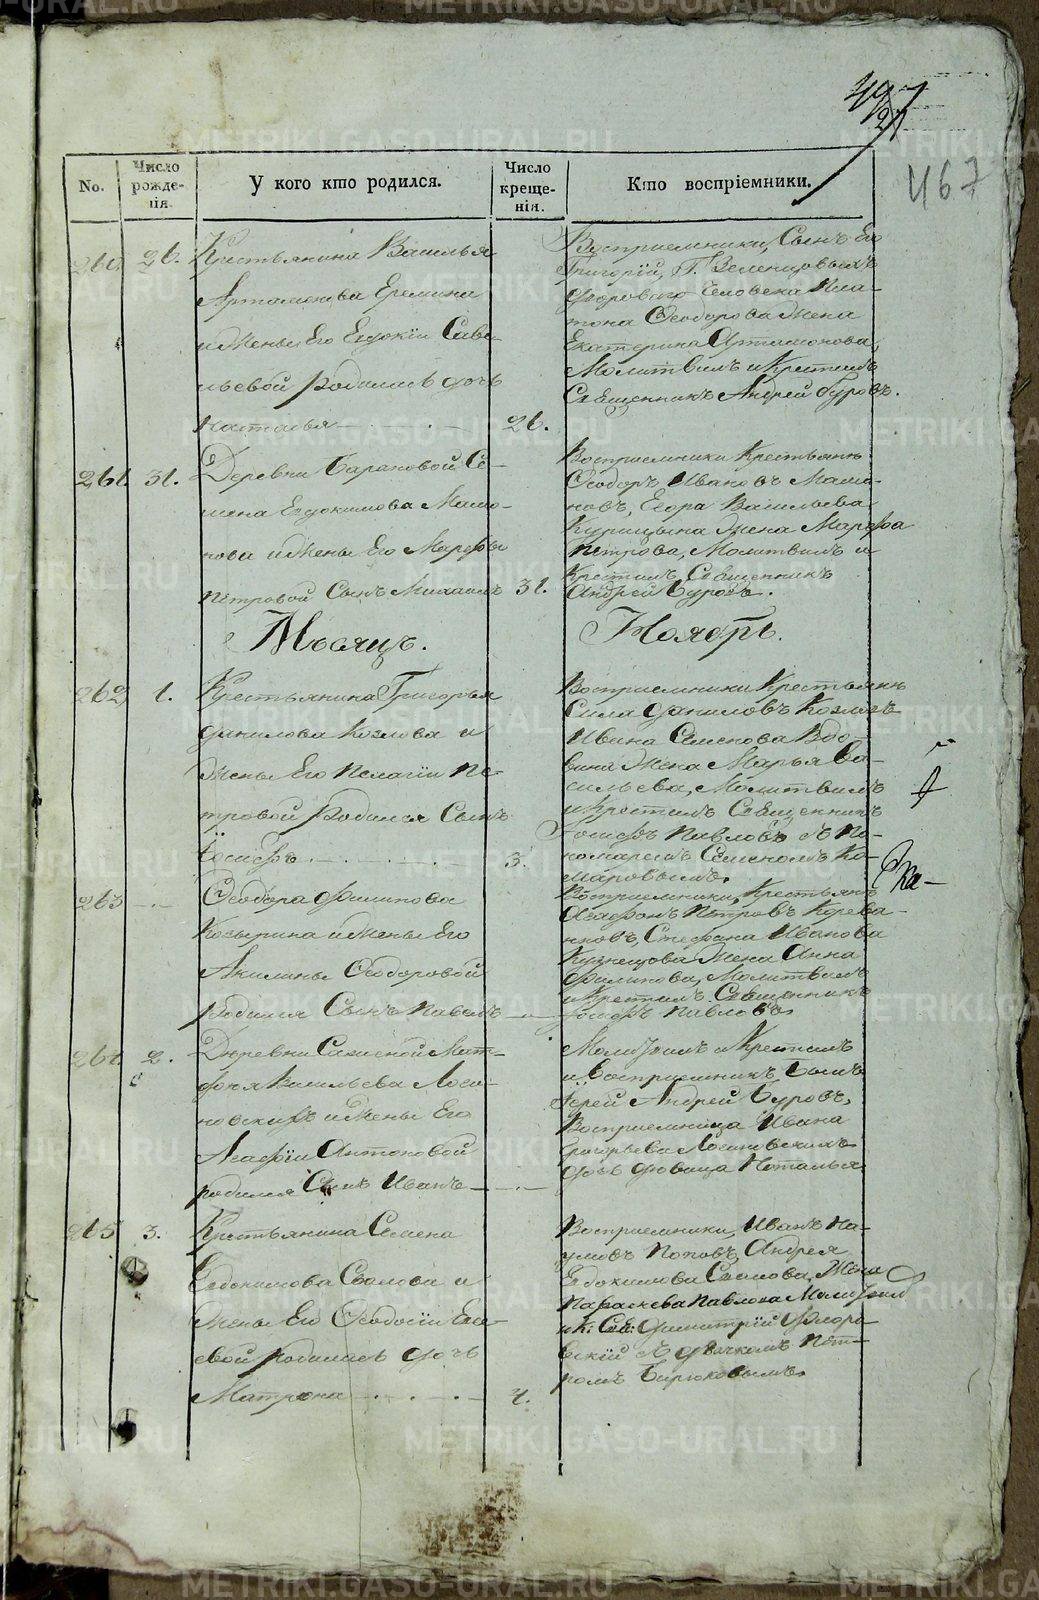 497
467
No.
Число рожде-нія.
У кого кто родился.
Число креще-нія.
Кто воспріемники.
260. 26.
Крестьянина Василья
Артамонова Еремина
и Жены Его Евдокіи Саве-
льевой родилась дочь
Наталья 26.
Восприемники, Сынъ Его
Григорій, Г. Зеленцовыхъ
двороваго человека Пла-
тона Ѳеодорова Жена
Екатерина Артамонова,
Молитвилъ и Крестилъ
Священникъ Андрей Буровъ.
261. 31.
Деревни Барановой Се-
мена Евдокимова Мамо-
нова и Жены Его Марѳы
Петровой Сынъ Михаилъ 31.
Восприемники Крестьянинъ
Ѳеодоръ Ивановъ Мамо-
новъ, Егора Васильева
Курицына Жена Марѳа
Петрова, Молитвилъ и
Крестилъ Священникъ
Андрей Буровъ.
Мѣсяцъ. Ноябрь.
262 1.
Крестьянина Григорья
Данилова Козлова и
Жены Его Пелагіи Пе-
тровой родился Сынъ
Іосифъ 3.
Восприемники Крестьянинъ
Сила Даниловъ Козловъ
Ивана Семенова Вдо-
вина Жена Марья Ва-
сильева, Молитвилъ
и Крестилъ Священникъ
Іосифъ Павловъ съ По-
номаремъ Семеномъ Ко-
маровымъ.
263
Ѳеодора Филипова
Козырина и Жены Его
Акилины Ѳеодоровой
родился Сынъ Павелъ
Восприемники, Крестьянинъ
Агафонъ Петровъ
Стефана Иванова
Кузнецова Жена Анна
Филипова, Молитвилъ
и Крестилъ Священникъ
Іосифъ Павловъ
264. 2.
Деревни Мат-
фея Васильева Лоси-
новскихъ и Жены Его
Агафіи Антоновой
родился Сынъ Иванъ
Молитвилъ и Крестилъ
и Восприемникъ былъ
Іерей Андрей Буровъ,
Восприемница Ивана
Григорьева Лосиновскихъ
дочь девица Наталья
265 3.
Крестьянина Семена
Евдокимова и
Жены Его Ѳеодосіи
родилась дочь
Матрона 4.
Восприемники, Иванъ На-
умовъ Поповъ, Андрея
Евдокимова Жена
Параскева Павлова Молитвилъ
и К: Свя: Димитрій Флоро-
вскій съ дьячкомъ Пет-
ромъ Бирюковымъ.
METRIKI.GASO-URAL.RU